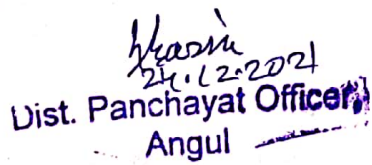 24.12.2021
Dist. Panchayat Officer,
Angul